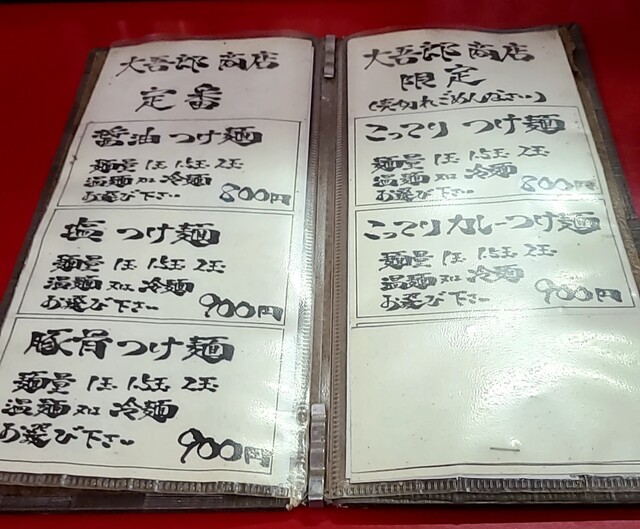 大吾郎 商店
定番
醤油 つけ麺
麺量 1玉 1.5玉 2玉
温麺 又は 冷麺
お選び下さい 800円
塩 つけ麺
麺量 1玉 1.5玉 2玉
温麺 又は 冷麺
お選び下さい 900円
豚骨 つけ麺
麺量 1玉 1.5玉 2玉
温麺 又は 冷麺
お選び下さい 900円
大吾郎 商店
限定
(売切れごめんなさい)
こってり つけ麺
麺量 1玉 1.5玉 2玉
温麺 又は 冷麺
お選び下さい 800円
こってりカレーつけ麺
麺量 1玉 1.5玉 2玉
温麺 又は 冷麺
お選び下さい 900円